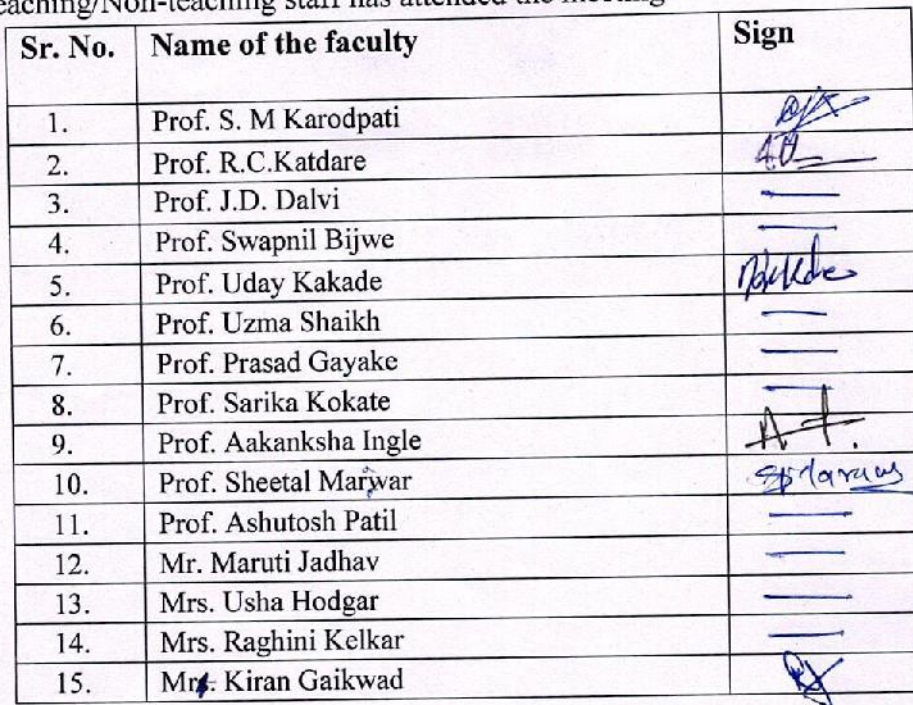 eaching/Non-teaching staff has attended the meeting
Sr. No. Name of the faculty Sign
1. Prof. S. M Karodpati
2. Prof. R.C.Katdare
3. Prof. J.D. Dalvi
4. Prof. Swapnil Bijwe
5. Prof. Uday Kakade
6. Prof. Uzma Shaikh
7. Prof. Prasad Gayake
8. Prof. Sarika Kokate
9. Prof. Aakanksha Ingle
10. Prof. Sheetal Marwar
11. Prof. Ashutosh Patil
12. Mr. Maruti Jadhav
13. Mrs. Usha Hodgar
14. Mrs. Raghini Kelkar
15. Kiran Gaikwad